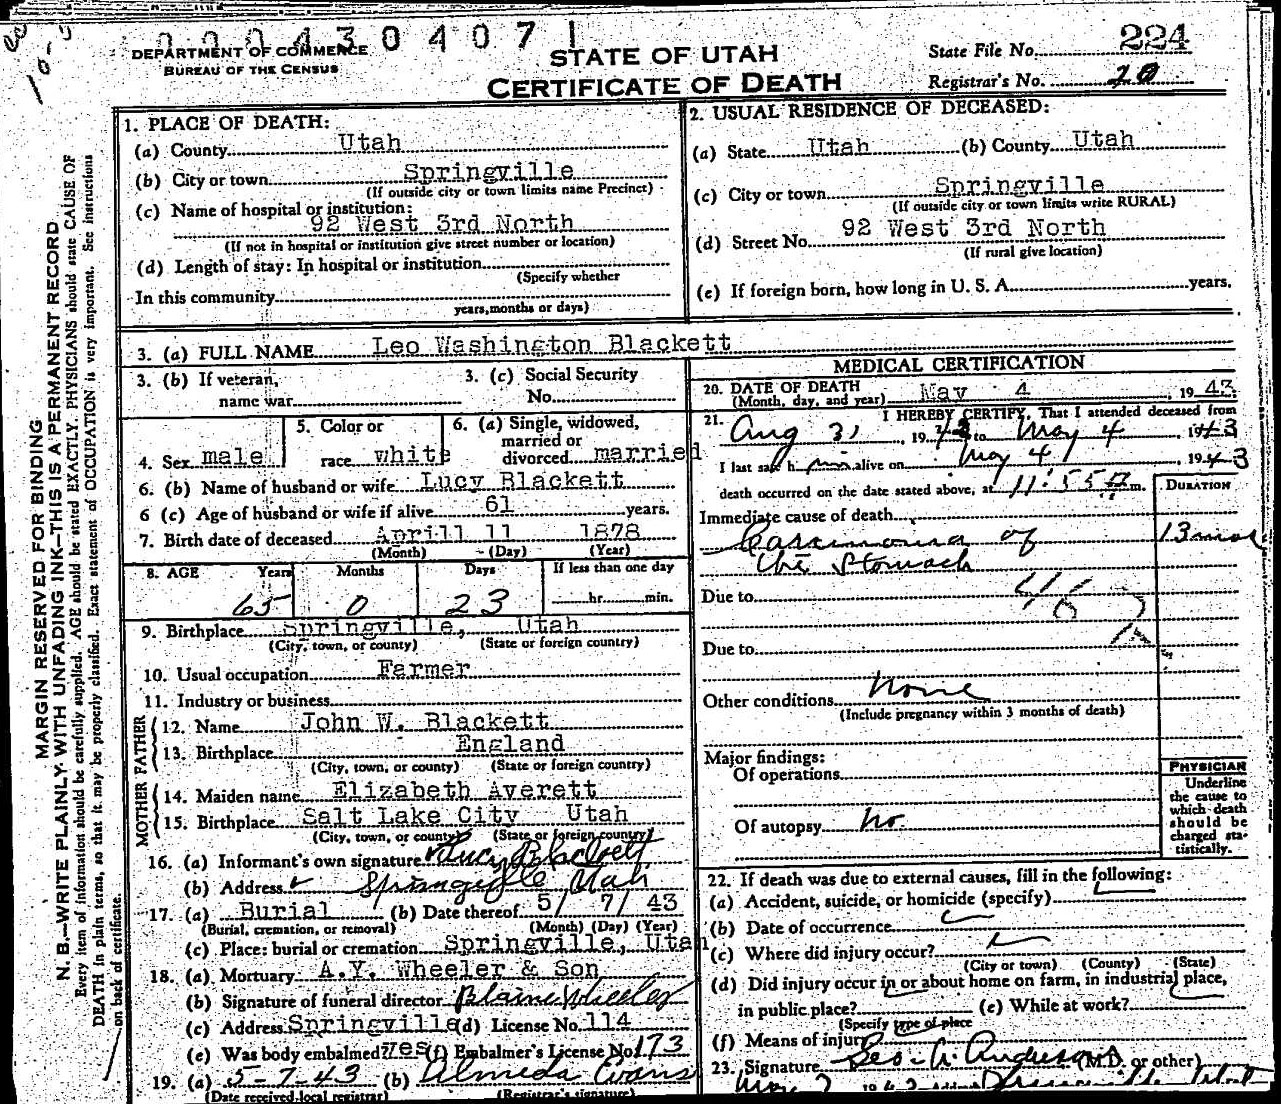 0004304071
DEPARTMENT OF COMMERCE
BUREAU OF THE CENSUS
STATE OF UTAH
CERTIFICATE OF DEATH
State File No. 224
Registrar's No. 20
MARGIN RESERVED FOR BINDING
N. B.—WRITE PLAINLY WITH UNFADING INK—THIS IS A PERMANENT RECORD
Every item of information should be carefully supplied. AGE should be stated EXACTLY. PHYSICIANS should state CAUSE OF
DEATH in plain terms, so that it may be properly classified. Exact statement of OCCUPATION is very important. See instructions
on back of certificate.
1. PLACE OF DEATH:
(a) County Utah
(b) City or town Springville
(If outside city or town limits name Precinct)
(c) Name of hospital or institution:
92 West 3rd North
(If not in hospital or institution give street number or location)
(d) Length of stay: In hospital or institution
(Specify whether
In this community
years, months or days)
2. USUAL RESIDENCE OF DECEASED:
(a) State Utah (b) County Utah
(c) City or town Springville
(If outside city or town limits write RURAL)
(d) Street No. 92 West 3rd North
(If rural give location)
(e) If foreign born, how long in U. S. A. years.
3. (a) FULL NAME Leo Washington Blackett
3. (b) If veteran, name war
3. (c) Social Security No.
4. Sex male
5. Color or race white
6. (a) Single, widowed, married or divorced married
6. (b) Name of husband or wife Lucy Blackett
6 (c) Age of husband or wife if alive 61 years.
7. Birth date of deceased Aprill 11 1878
(Month) (Day) (Year)
8. AGE Years Months Days If less than one day
65 0 23 hr. min.
9. Birthplace Springville, Utah
(City, town, or county) (State or foreign country)
10. Usual occupation Farmer
11. Industry or business
FATHER
12. Name John W. Blackett
13. Birthplace England
(City, town, or county) (State or foreign country)
MOTHER
14. Maiden name Elizabeth Averett
15. Birthplace Salt Lake City Utah
(City, town, or county) (State or foreign country)
16. (a) Informant's own signature Lucy Blackett
(b) Address Springville Utah
17. (a) Burial (b) Date thereof 5/ 7/ 43
(Burial, cremation, or removal) (Month) (Day) (Year)
(c) Place: burial or cremation Springville, Utah
18. (a) Mortuary A.Y. Wheeler & Son
(b) Signature of funeral director Blaine Wheeler
(c) Address Springville (d) License No. 114
(e) Was body embalmed? yes (f) Embalmer's License No. 173
19. (a) 5-7-43 (b) Almeda Evans
(Date received local registrar) (Registrar's signature)
MEDICAL CERTIFICATION
20. DATE OF DEATH May 4, 1943
(Month, day, and year)
21. I HEREBY CERTIFY, That I attended deceased from
Aug 31, 1942 to May 4, 1943
I last saw him alive on May 4, 1943
death occurred on the date stated above, at 11:55 m.
DURATION
Immediate cause of death
Carcinoma of 13 mos
the Stomach
Due to
Due to
Other conditions None
(Include pregnancy within 3 months of death)
Major findings:
Of operations
Of autopsy No.
PHYSICIAN
Underline
the cause to
which death
should be
charged sta-
tistically.
22. If death was due to external causes, fill in the following:
(a) Accident, suicide, or homicide (specify)
(b) Date of occurrence
(c) Where did injury occur?
(City or town) (County) (State)
(d) Did injury occur in or about home on farm, in industrial place,
in public place? (e) While at work?
(Specify type of place
(f) Means of injury
23. Signature Geo. A. Anderson (M.D. or other)